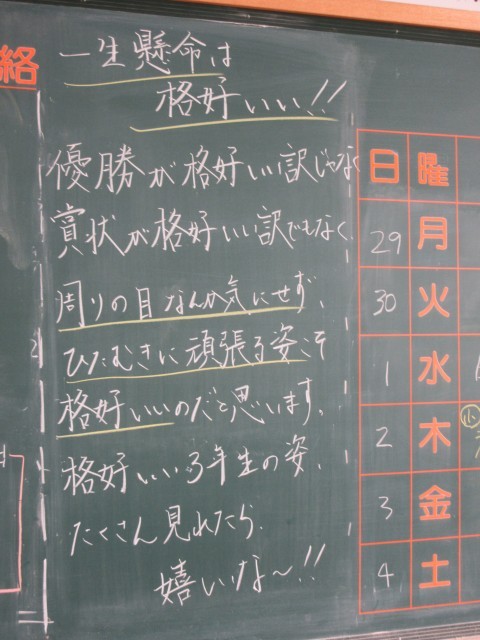 絡
一生懸命は
格好いい!!
優勝が格好いい訳じゃなく
賞状が格好いい訳でもなく、
周りの目なんか気にせず、
ひたむきに頑張る姿こそ
格好いいのだと思います。
格好いい3年生の姿、
たくさん見れたら
嬉しいな〜!!
日 曜
29 月
30 火
1 水
2 木 小
3 金
4 土